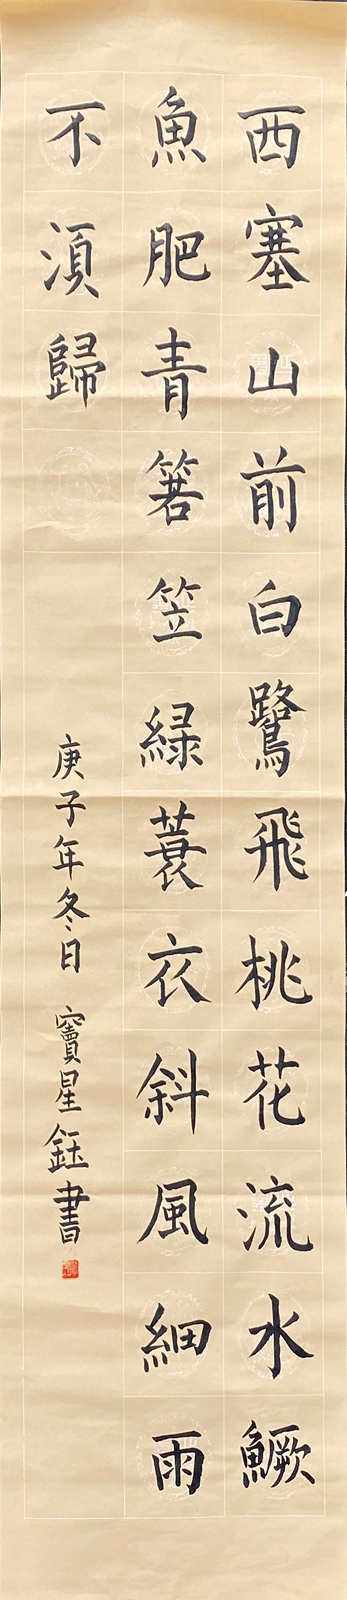 西塞山前白鷺飛桃花流水鱖
魚肥青箬笠緑蓑衣斜風細雨
不須歸
庚子年冬日 竇星鈺書